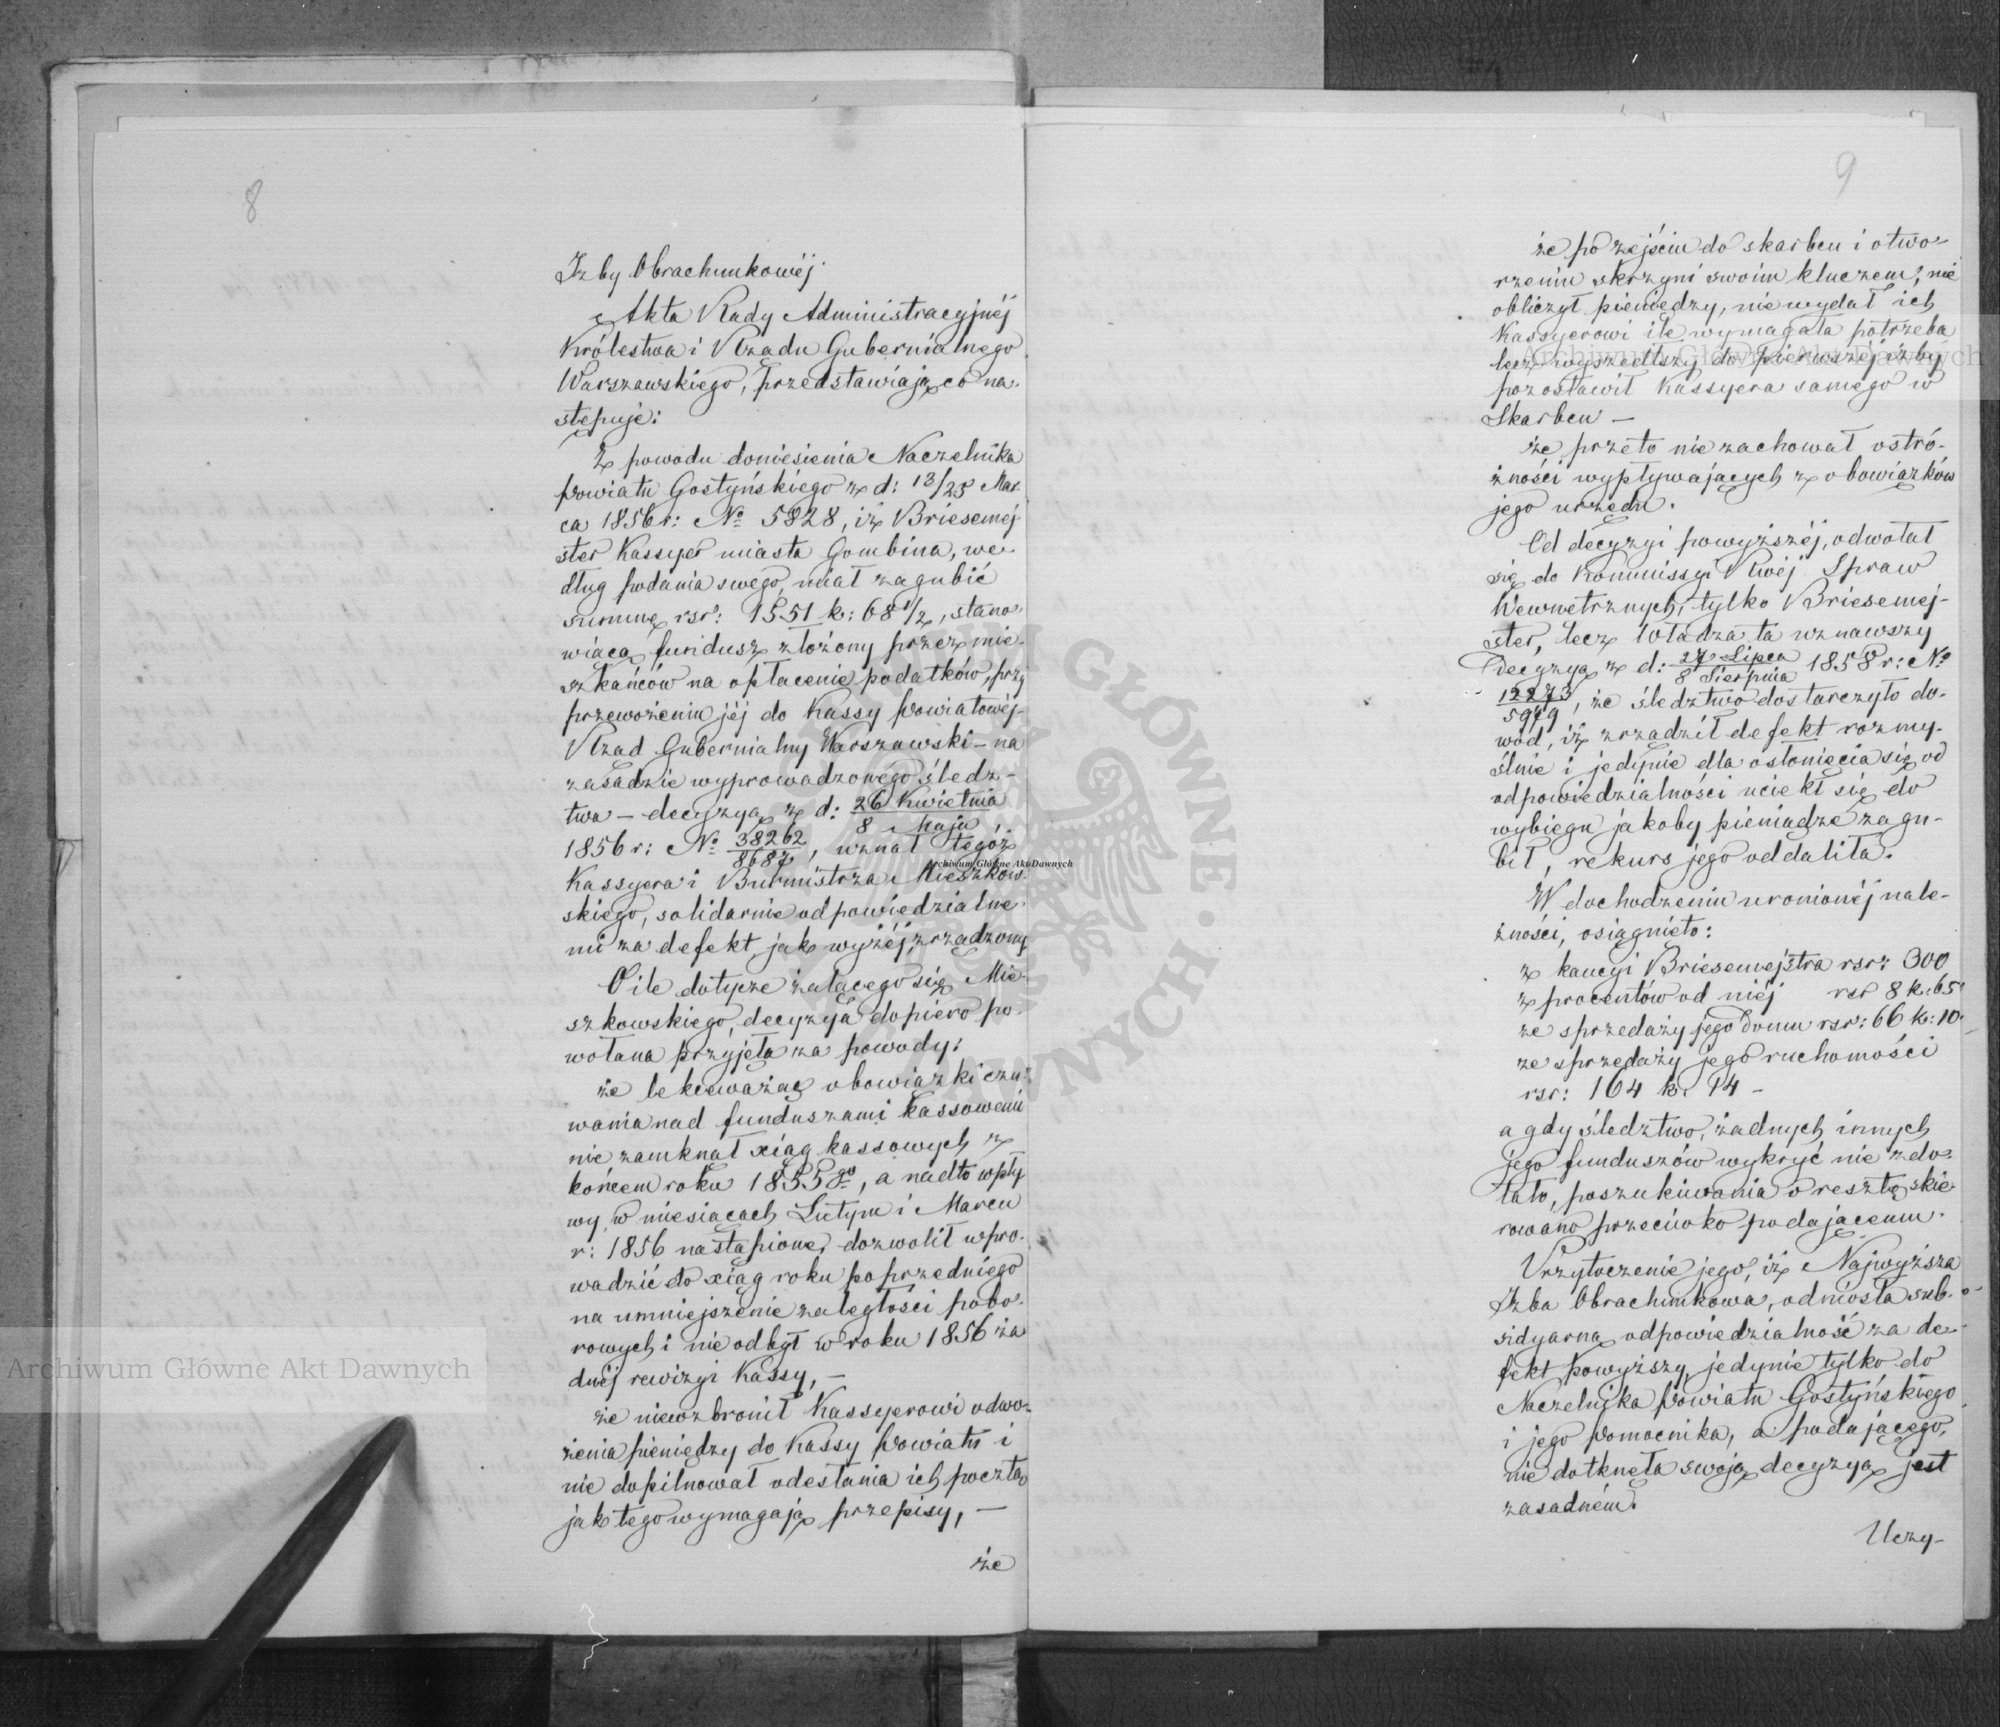 8
Izby Obrachunkowéj.
Akta Rady Administracyjnéj
Królestwa i Rządu Gubernialnego
Warszawskiego, przedstawiają co na-
stępuje:
Z powodu doniesienia Naczelnika
Powiatu Gostyńskiego z d: 13/25 Mar-
ca 1856 r: No 5828, iż Briesemej-
ster Kassyer miasta Gombina, we-
dług podania swego, miał zagubić
summę rsr: 1551 k: 68 1/2, stano-
wiącą fundusz złożony przez mie-
szkańców na opłacenie podatków, przy
przewożeniu jéj do Kassy Powiatowéj -
Rząd Gubernialny Warszawski – na
zasadzie wyprowadzonego śledz-
twa – decyzyą z d: 26 Kwietnia / 8 Maja
1856 r: No 38262/8687, uznał tegóż
Kassyera i Burmistrza Mieszkow-
skiego, solidarnie odpowiedzialne-
mi za defekt jak wyżéj zrządzony
O ile dotycze żalącego się Mie-
szkowskiego, decyzya dopiero po-
wołana przyjęła za powody:
że lekceważąc obowiązki czu-
wania nad funduszami Kassowemi
nie zamknął xiąg kassowych z
końcem roku 1855go, a nadto wpły
wy w miesiącach Lutym i Marcu
r: 1856 nastąpione, dozwolił wpro-
wadzić do xiąg roku poprzedniego
na umniejszenie zaległości pobo-
rowych i nie odbył w roku 1856 ża
dnéj rewizyi Kassy, –
że niewzbronił Kassyerowi odwo-
żenia pieniędzy do Kassy Powiatu i
nie dopilnował odesłania ich pocztą
jak tego wymagają przepisy, –
że
9
że po zejściu do skarbcu i otwo-
rzeniu skrzyni swoim kluczem, nie
obliczył pieniędzy, nie wydał ich
Kassyerowi ile wymagała potrzeba
lecz wyszedłszy do pierwszéj izby
pozostawił Kassyera samego w
Skarbcu –
że przeto nie zachował ostró-
żności wypływających z obowiązków
jego urzędu.
Od decyzyi powyższéj, odwołał
się do Kommissyi Rwéj Spraw
Wewnętrznych, tylko Briesemej-
ster, lecz Władza ta uznawszy
Decyzyą z d: 27 Lipca / 8 Sierpnia 1858 r: No
12273/5979, że śledztwo dostarczyło do-
wód, iż zrządził defekt rozmy-
ślnie i jedynie dla osłonięcia się od
odpowiedzialności uciekł się do
wybiegu jakoby pieniądze zagu-
bił, rekurs jego oddaliła.
W dochodzeniu uronionéj nale-
żności, osiągnięto:
z kaucyi Briesemejstra rsr: 300
z procentów od niéj rsr 8 k: 65
ze sprzedaży jego Domu rsr: 66 k: 10.
ze sprzedaży jego ruchomości
rsr: 164 k. 14 –
a gdy śledztwo, żadnych innych
jego funduszów wykryć nie zdo-
łało, poszukiwania o resztę skie
rowano przeciwko podającemu.
Przytoczenie jego, iż Najwyższa
Izba Obrachunkowa, odniosła sub-
sidyarną odpowiedzialność za de-
fekt powyższy, jedynie tylko do
Naczelnika Powiatu Gostyńskiego
i jego Pomocnika, a podającego,
nie dotknęła swoją decyzyą jest
zasadném.
Uczy-
Archiwum Główne Akt Dawnych
Archiwum Główne Akt Dawnych
Archiwum Główne Akt Dawnych